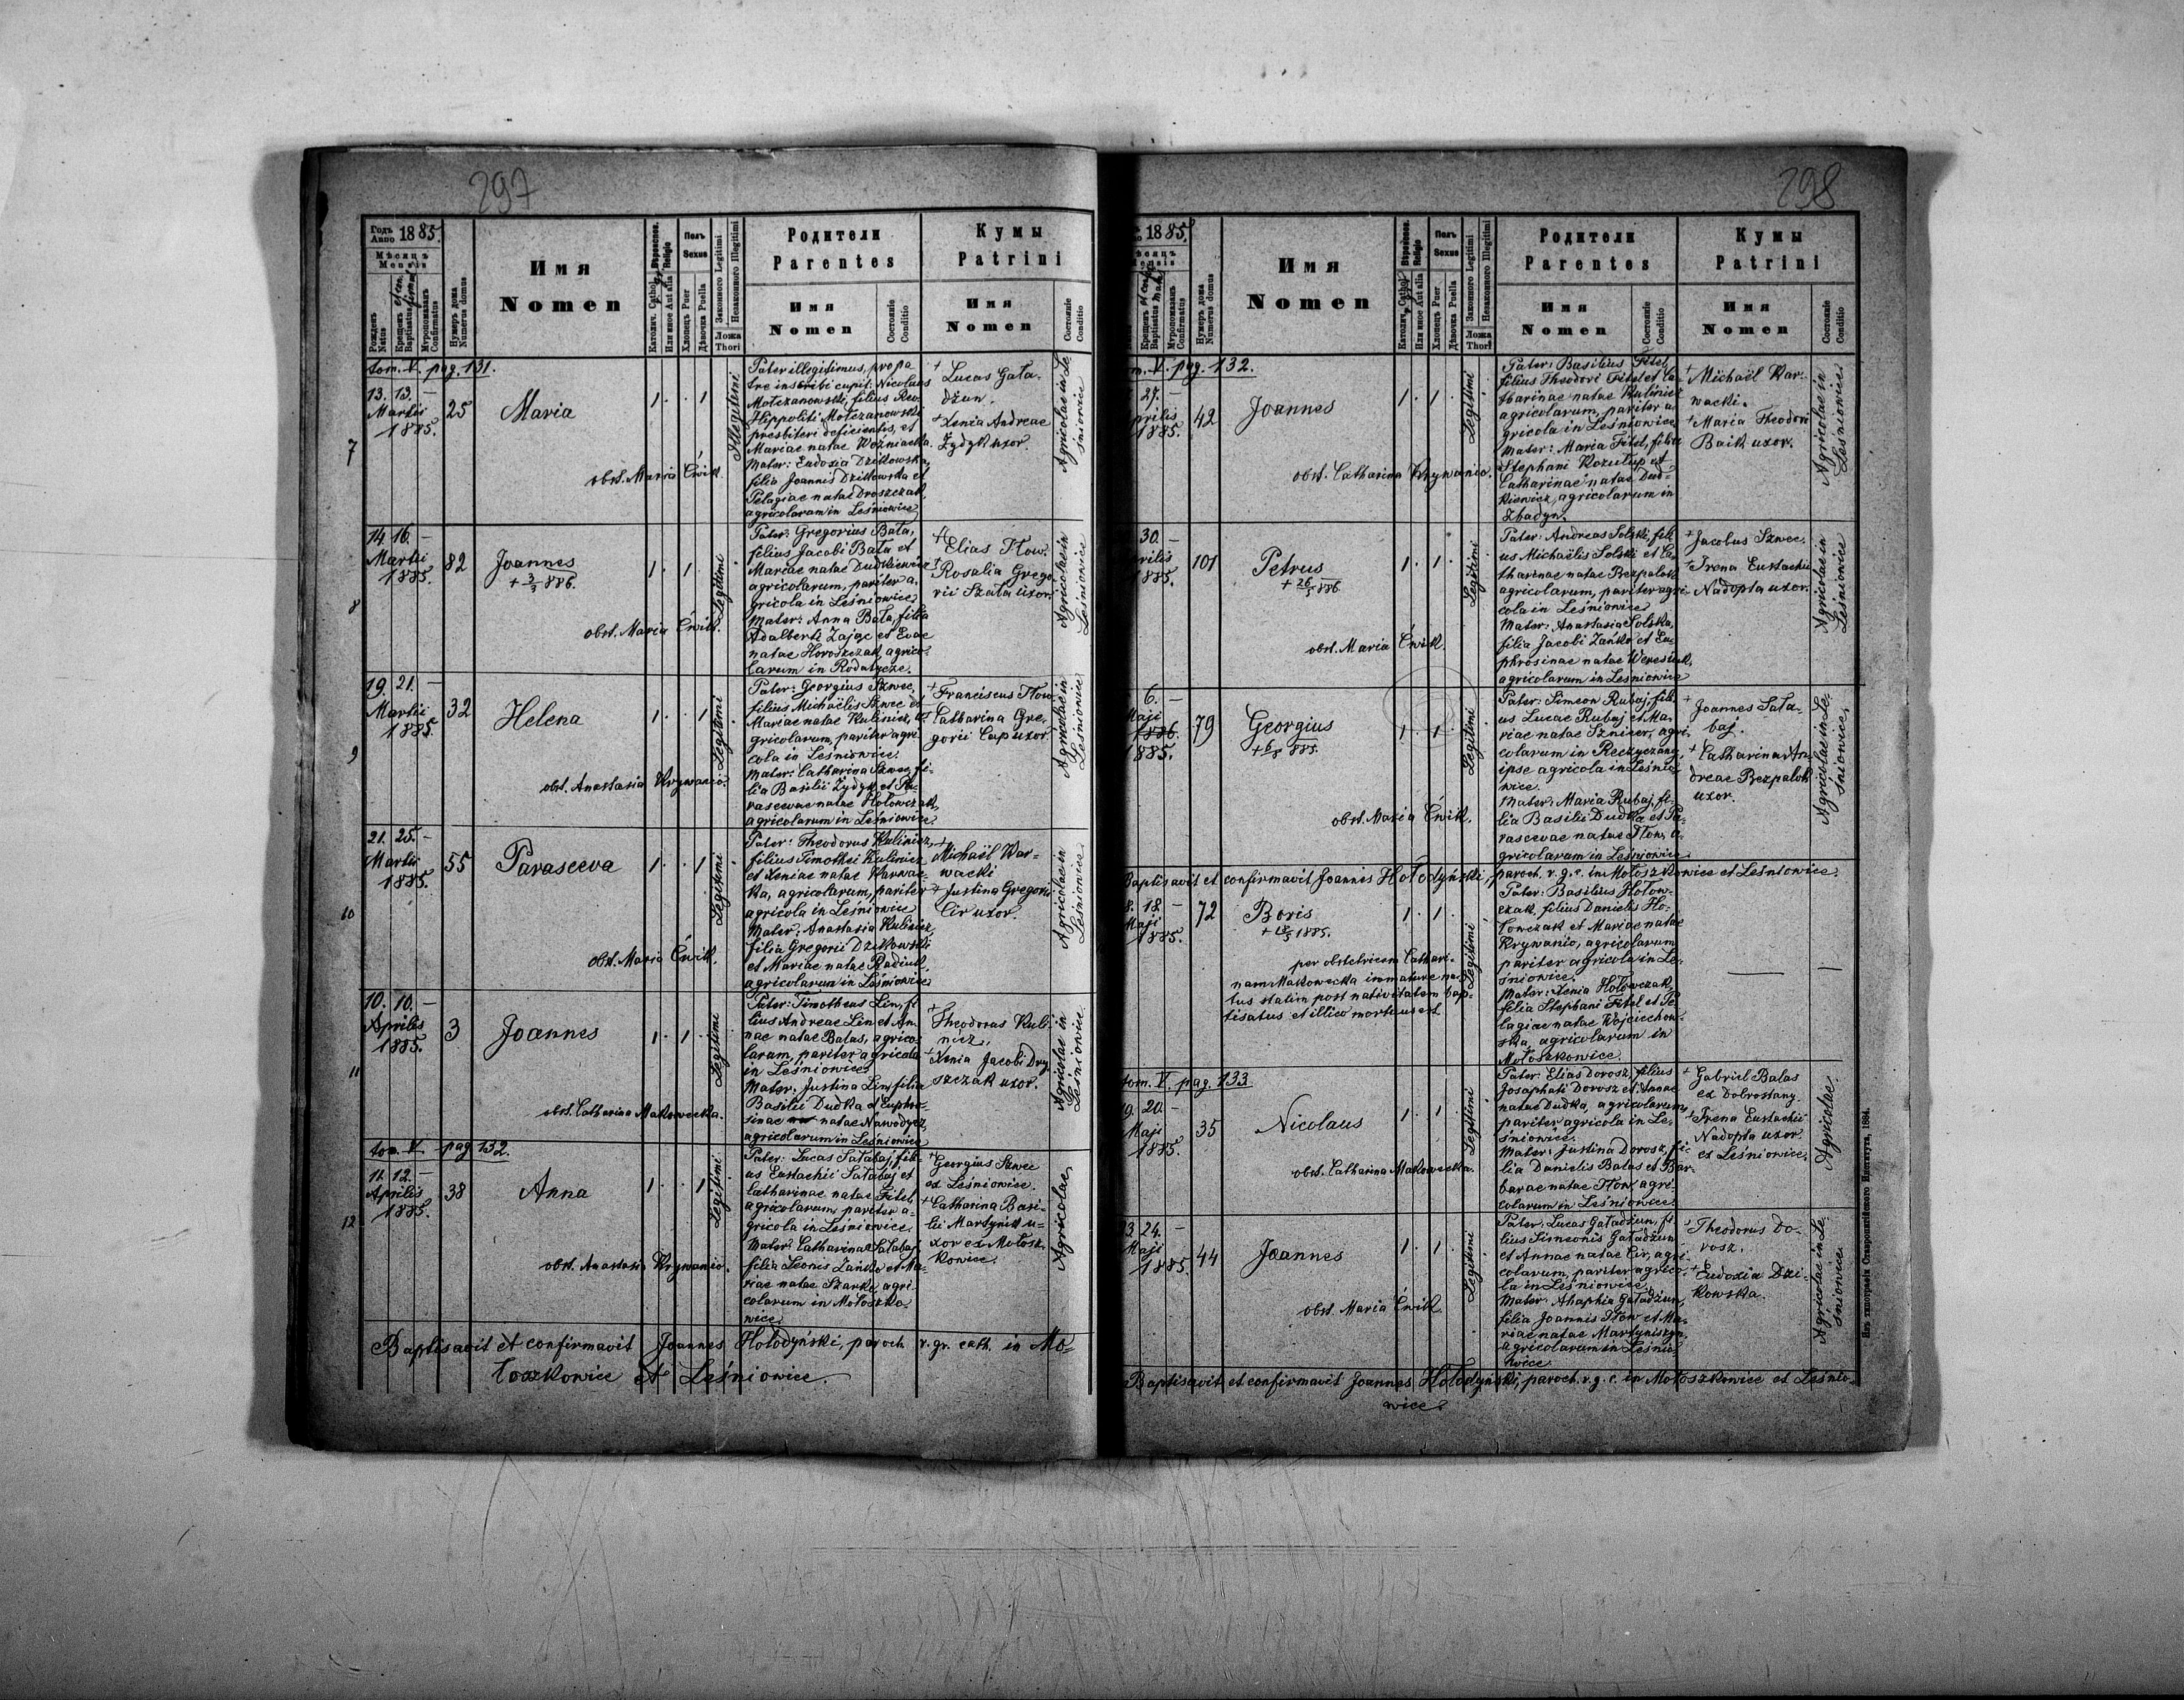 297
Годъ Anno 1885.
Мѣсяцъ Mensis
Рожденъ Natus
Крещенъ Baptisatus et confirmat
Муропомазанъ Confirmatus
Нумеръ дома Numerus domus
Имя
Nomen
Вѣроиспов. Religio
Католич. Cathol.
Или иное Aut alia
Полъ Sexus
Хлопецъ Puer
Дѣвочка Puella
Законного Legitimi
Незаконного Illegitimi
Ложа Thori
Родители
Parentes
Имя
Nomen
Состояніе Conditio
Кумы
Patrini
Имя
Nomen
Состояніе Conditio
tom. V. pag. 131.
7
13. 13. —
Martii
1885.
25
Maria
1. . 1
Illegitimi
obst. Maria Ćwik.
Pater illegitimus, pro pa
tre inscribi cupit: Nicolaus
Mołczanowski, filius Rev.
Hippoliti Mołczanowski
presbiteri deficientis, et
Mariae natae Woźniacka.
Mater: Eudoxia Dzikowska,
filia Joannis Dzikowska et
Pelagiae natae Droszczak,
agricolarum in Leśniowice
+ Lucas Gała-
dżun.
+ Xenia Andreae
Żydyk uxor.
Agricolae in Le
śniowice
8
14. 16. —
Martii
1885.
82
Joannes
+ 3/3 886.
1. 1.
Legitimi
obst. Maria Ćwik.
Pater: Gregorius Bała,
filius Jacobi Bała et
Mariae natae Dudkiewicz
agricolarum, pariter a,
gricola in Leśniowice
Mater: Anna Bała, filia
Adalberti Zając et Evae
natae Horoszczak, agrico-
larum in Rodatycze.
+ Elias Iłow.
Rosalia Grego
rii Szała uxor.
Agricolae in
Leśniowice
9
19. 21. —
Martii
1885.
32
Helena
1. . 1
Legitimi
obst. Anastasia Krywanio.
Pater: Georgius Szwec,
filius Michaëlis Szwec et
Mariae natae Kulinicz, a-
gricolarum, pariter agri
cola in Leśniowice.
Mater: Catharina Szwec, fi-
lia Basilii Żydyk et Pa-
rascevae natae Hołowczak,
agricolarum in Leśniowice
+ Franciscus Iłow
+ Catharina Gre-
gorii Cap uxor.
Agricolae in
Leśniowice
10
21. 25. —
Martii
1885.
55
Parasceva
1. . 1
Legitimi
obst. Maria Ćwik.
Pater: Theodorus Kulinicz,
filius Timothei Kulinicz
et Xeniae natae Warwac-
ka, agricolarum, pariter
agricola in Leśniowice
Mater: Anastasia Kulinicz,
filia Gregorii Dzikowski
et Mariae natae Radiuk,
agricolarum in Leśniowice
+ Michaël War-
wacki
+ Justina Gregorii
Cir uxor.
Agricolae in
Leśniowice
11
10. 10. —
Aprilis
1885.
3
Joannes
1. 1.
Legitimi
obst. Catharina Makowecka.
Pater: Timotheus Lin, fi
lius Andreae Lin et An-
nae natae Balas, agrico-
larum, pariter agricola
in Leśniowice
Mater: Justina Lin, filia
Basilii Dudka et Euphro-
sinae natae Nawodycz,
agricolarum in Leśniowice
+ Theodorus Kuli
nicz.
+ Xenia Jacobi Dro
szczak uxor.
Agricolae in
Leśniowice
tom. V. pag 132.
12
11. 12. —
Aprilis
1885.
38
Anna
1. . 1
Legitimi
obst. Anastasia Krywanio.
Pater: Lucas Sałabaj, fili-
us Eustachii Sałabaj et
Catharinae natae Fitel,
agricolarum, pariter a-
gricola in Leśniowice.
Mater: Catharina Sałabaj,
filia Leonis Zańko et Ma-
riae natae Szarko, agri-
colarum in Mołoszko-
wice.
+ Georgius Szwec
ex Leśniowice.
+ Catharina Basi-
lii Martyniw u-
xor ex Mołosz-
kowice.
Agricolae
Baptisavit et confirmavit Joannes Hołodyński, paroch. r. gr. cath. in Mo-
łoszkowice et Leśniowice
298
1885.
Крещенъ Baptisatus
Муропомазанъ Confirmatus
Нумеръ дома Numerus domus
Имя
Nomen
Вѣроиспов. Religio
Католич. Cathol.
Или иное Aut alia
Полъ Sexus
Хлопецъ Puer
Дѣвочка Puella
Законного Legitimi
Незаконного Illegitimi
Ложа Thori
Родители
Parentes
Имя
Nomen
Состояніе Conditio
Кумы
Patrini
Имя
Nomen
Состояніе Conditio
m. V. pag. 132.
27. —
prilis
1885.
42
Joannes
1. 1.
Legitimi
obst. Catharina Krywanio.
Pater: Basilius Fitel,
filius Theodori Fitel et Ca-
tharinae natae Kulinicz
agricolarum, pariter a-
gricola in Leśniowice
Mater: Maria Fitel, filia
Stephani Kozułup et
Catharinae natae Dud-
kiewicz, agricolarum in
Zbadyn.
+ Michaël War-
wacki.
+ Maria Theodori
Baik uxor.
Agricolae in
Leśniowice
30. —
prilis
1885.
101
Petrus
+ 26/5 886
1. 1.
Legitimi
obst. Maria Ćwik.
Pater: Andreas Solski, fili
us Michaëlis Solski et Ca-
tharinae natae Bezpalok
agricolarum, pariter agri-
cola in Leśniowice
Mater: Anastasia Solska,
filia Jacobi Zańko et Eu-
phrosinae natae Weresiuk,
agricolarum in Leśniowice
+ Jacobus Szwec.
+ Irena Eustachii
Nadopta uxor.
Agricolae in
Leśniowice
6. —
Maji
1886.
1885.
79
Georgius
+ 6/8 885.
1. 1.
Legitimi
obst. Maria Ćwik.
Pater: Simeon Rubaj, fili-
us Lucae Rubaj et Ma-
riae natae Sznicer, agri-
colarum in Reczyczany,
ipse agricola in Leśnio-
wice.
Mater: Maria Rubaj, fi-
lia Basilii Dudka et Pa-
rascevae natae Iłow, a-
gricolarum in Leśniowice
+ Joannes Sała-
baj.
+ Catharina An-
dreae Bezpalok
uxor.
Agricolae in Le-
śniowice,
Baptisavit et confirmavit Joannis Hołodyński, paroch. r. g. c. in Mołoszkowice et Leśniowice.
8. 18. —
Maji
1885.
72
Boris
+ 18/5 1885.
1. 1.
Legitimi
per obstetricem Cathari-
nam Makowecka immature na-
tus statim post nativitatem bap-
tisatus et illico mortuus est
Pater: Basilius Hołow-
czak, filius Danielis Ho-
łowczak et Mariae natae
Krywanio, agricolarum
pariter agricola in Le-
śniowice.
Mater: Xenia Hołowczak,
filia Stephani Fitel et Pe
lagiae natae Wojciechow-
ska, agricolarum in
Mołoszkowice
tom. V. pag. 133
19. 20. —
Maji
1885.
35
Nicolaus
1. 1.
Legitimi
obst. Catharina Makowecka.
Pater: Elias Dorosz, filius
Josaphati Dorosz et Annae
natae Dudka, agricolarum,
pariter agricola in Le-
śniowice.
Mater: Justina Dorosz, fi-
lia Danielis Balas et Bar-
barae natae Iłow, agri-
colarum in Leśniowice
+ Gabriel Balas
ex Dobrostany.
+ Irena Eustachii
Nadopta uxor
ex Leśniowice.
Agricolae
3. 24. —
Maji
1885.
44
Joannes
1. 1.
Legitimi
obst. Maria Ćwik.
Pater: Lucas Gaładżun, fi-
lius Simeonis Gaładżun
et Annae natae Cir, agri-
colarum, pariter agrico-
la in Leśniowice.
Mater: Ahaphia Gaładżun,
filia Joannis Iłow et Ma-
riae natae Martyniszyn,
agricolarum in Leśnio-
wice
+ Theodorus Do-
rosz.
+ Eudoxia Dzi-
kowska.
Agricolae in Le-
śniowice
Baptisavit et confirmavit Joannes Hołodyński, paroch. r. g. c. in Mołoszkowice et Leśnio-
wice.
Изъ типографіи Ставропигійского Института, 1884.